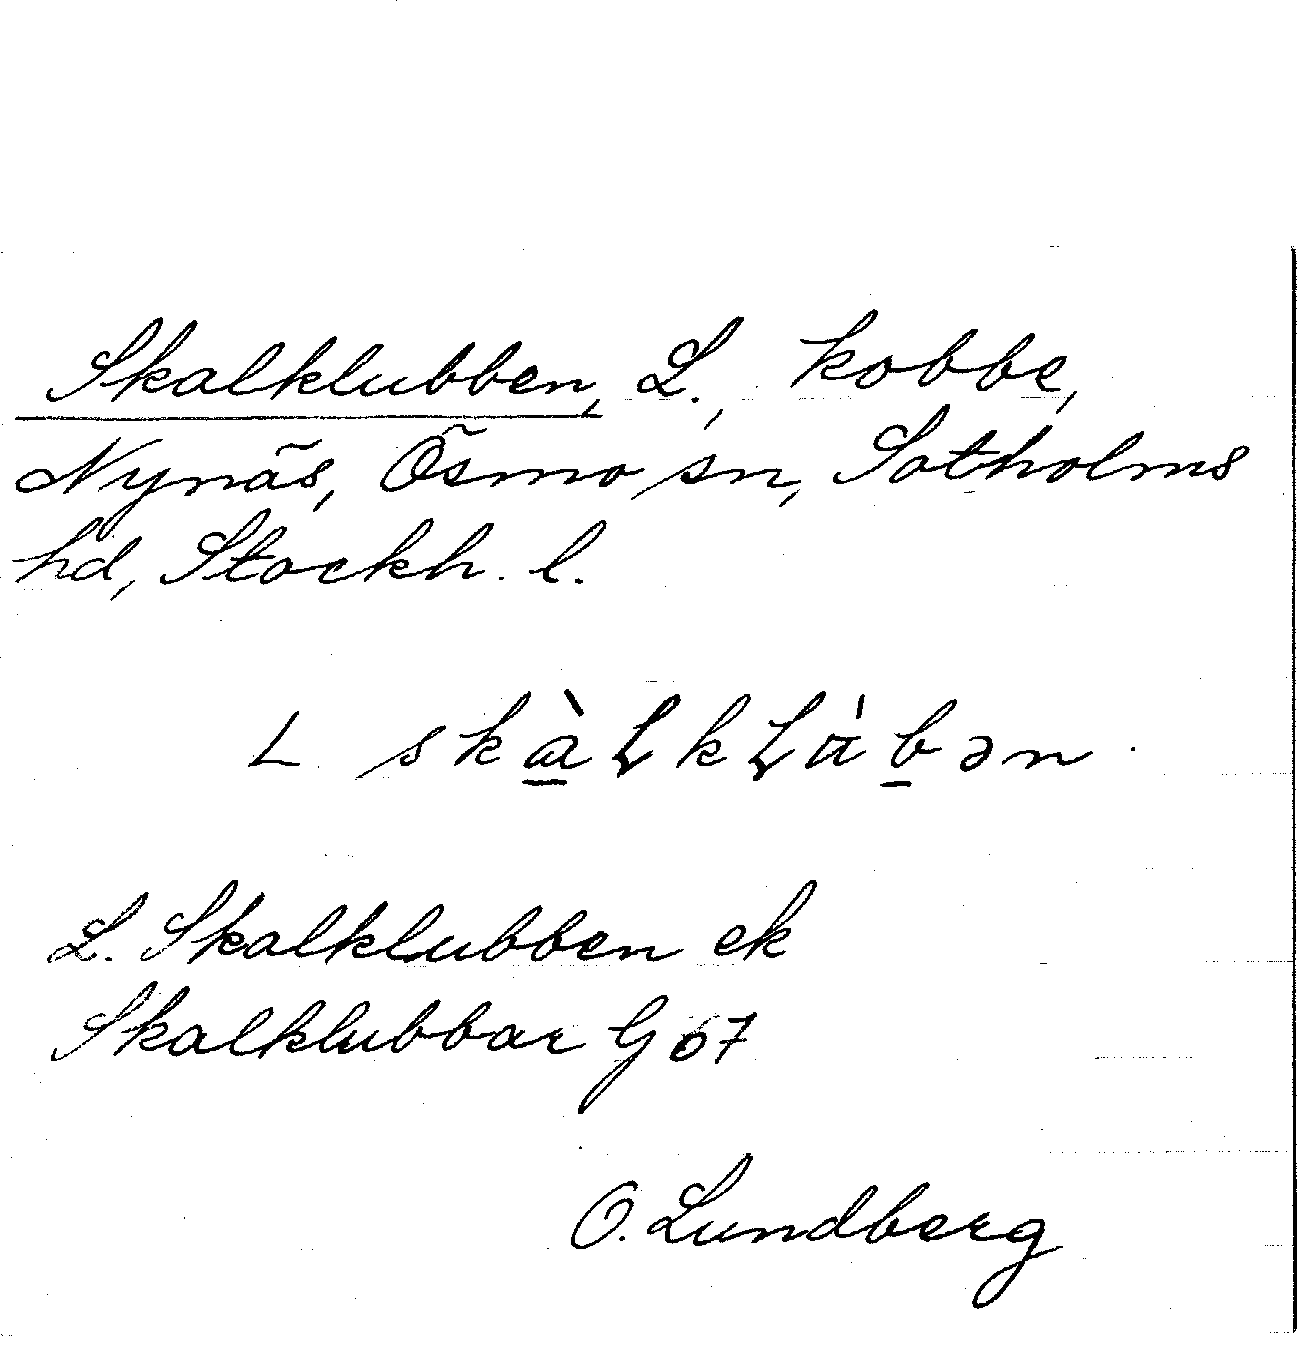 Skalklubben, L., kobbe,
Nynäs, Ösmo sn, Sotholms
hd, Stockh. l.
L skàlklu̇bən.
L. Skalklubben ek
Skalklubbar G 67
O. Lundberg